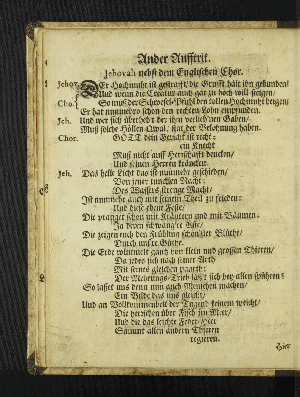 Ander Aufftrit.
Jehovah nebst dem Englischen Chor.
Jehov. Der Hochmuht ist gestrafft / die Grufft hält ihn gebunden /
Und wenn die Creatur auch gar zu hoch will steigen /
Cho. So muß der Schwefel-Pfuhl den tollen Hochmuht beugen /
Er hat nunmehro schon den rechten Lohn empfunden.
Jeh. Und wer sich überhebt der ihm verliehnen Gaben /
Muß solche Höllen-Qwal / statt der Belohnung haben.
Chor. GOTT dein Gericht ist recht:
ein Knecht
Muß nicht auff Herrschafft dencken /
Und seinen Herren kräncken.
Jeh. Das helle Licht das ist nunmehr geschieden /
Von jener tuncklen Nacht:
Des Wassers strenge Macht /
Ist nunmehr auch mit seinem Theil zu frieden:
Und diese Feste /
Die pranget schon mit Kräutern und mit Bäumen /
Die zeigen euch den Frühling schönster Blüthe /
Durch unsre Güthe.
Die Erde wimmelt gantz von klein und grossen Thieren /
Da jedes sich nach seiner Arth
Mit seines gleichen paart:
Der Mehrungs-Trieb läst sich bey allen spühren:
So lasset uns denn nun auch Menschen machen /
Ein Bilde das uns gleicht /
Und an Vollkommenheit der Tugend keinem weicht /
Die herrschen über Fisch im Meer /
Und die das leichte Feder-Heer
Sammt allen andern Thieren
regieren.